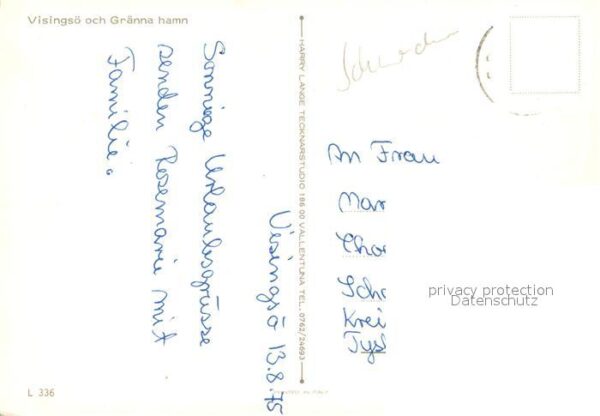 Visingsö och Gränna hamn
Visingsö 13.8.75
Sonnige Urlaubsgrüsse
senden Rosemarie mit
Familie.
HARRY LANGE TECKNARSTUDIO 186 00 VALLENTUNA TEL. 0762/24693
Schweden
An Frau
Mar
Chor
Schr
Krei
privacy protection
Datenschutz
L 336
PRINTED IN ITALY